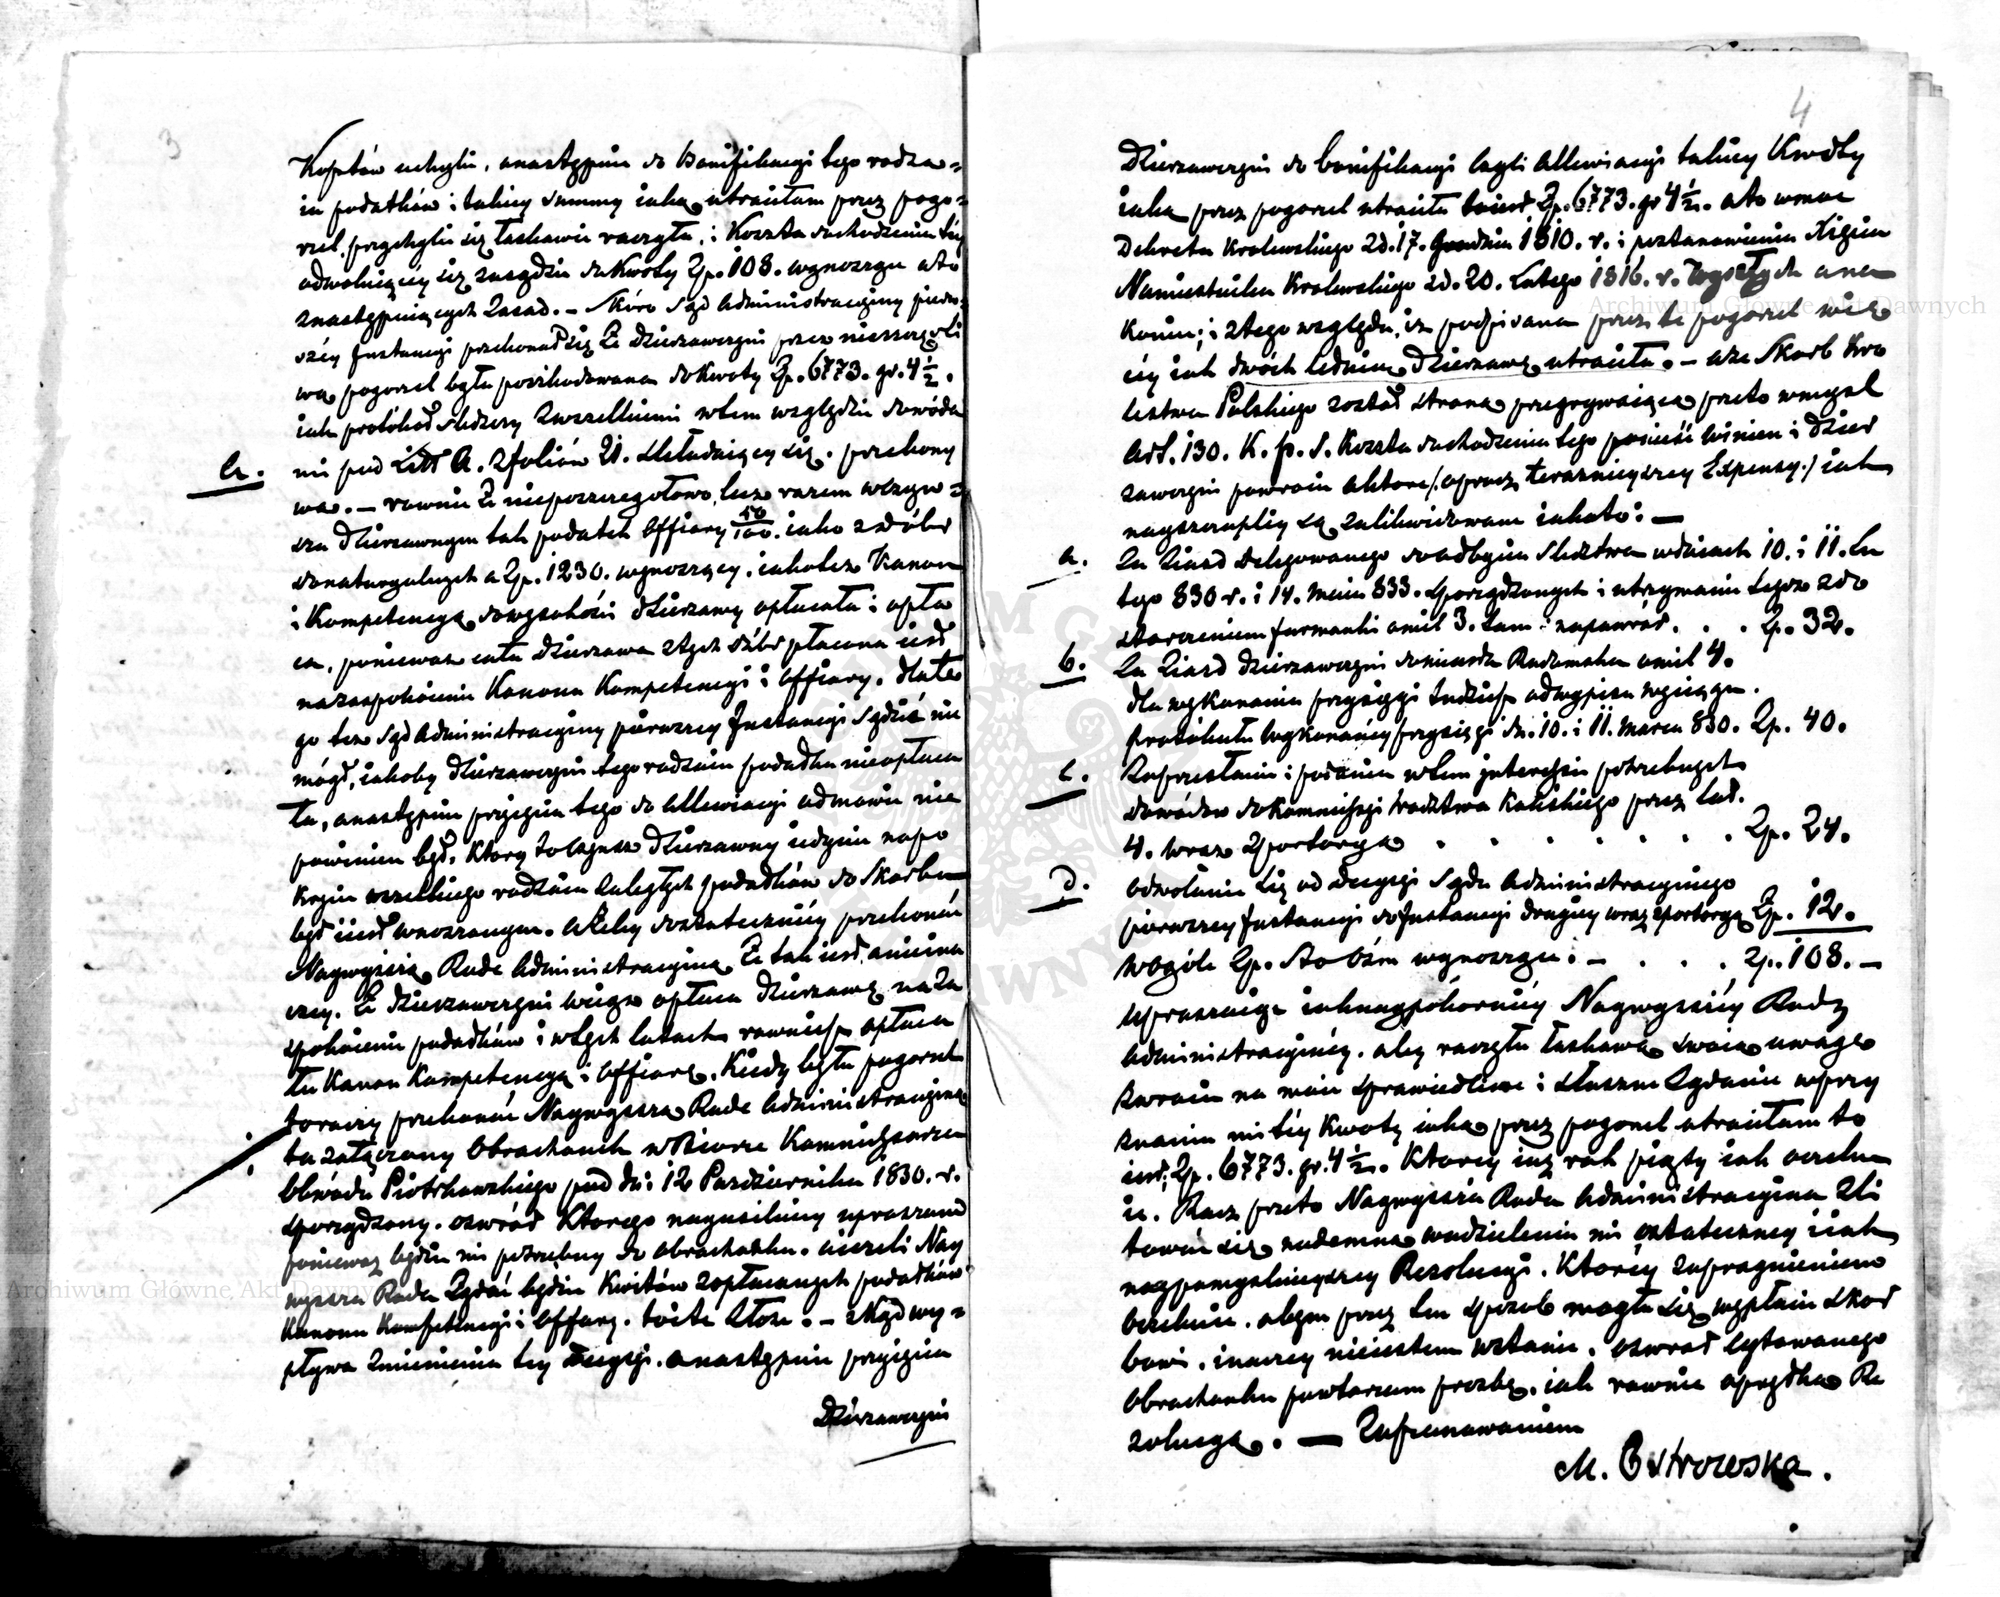 3
Kosztów uchyli, a następnie do Bonifikacyi tego rodza=
iu podatków i takiey summy iaką utraciłam przez pogo=
rzel, przychylić się łaskawie raczyła, i Koszta dochodzenia tey
odwołuiącey się zasądzić do Kwoty Zp. 108. wynoszące a to
z następuiących Zasad. – Skoro Sąd Administracyiny pierw=
szey Instancyi przekonał się że Dzierzawczyni przez nieszczęśli
wą pogorzel była poszkodowaną do Kwoty Zp. 6773. gr. 4½.
iak protokoł śledczy z wszelkiemi w tem względzie dowoda
a. mi pod Litt A. z foliów 21. składaiący się. przekony
wa. – rownie że nieposzczegołowo lecz razem w czyn=
szu Dzierzawnym tak podatek Offiary 50/100. iako z dóbr
donataryalnych a Zp. 1230. wynoszący, iakotez Kanon
i Kompetencyą do wysokości dzierzawy opłacała i opła
ca, poniewaz cała dzierzawa z tych dóbr płacona iest
na zaspokoienie Kanonu Kompetencyi i Offiary. Dlate
go tez Sąd Administracyiny pierwszey Instancyi Sądzić nie
mógł, iakoby Dzierzawczyni tego rodzaiu podatku nieopłaca
ła, a następnie przyięcia tego do allewiacyi odmawiać nie
powinien był. Ktory to czynsz Dzierzawny iedynie na po
krycie wszelkiego rodzaiu zaległych podatków do Skarbu
był i iest wnoszonym. Ażeby dostatecznéy przekonać
Naywyższą Radę Administracyiną że tak iest, a nieina
czey. że Dzierzawczyni wciąz opłaca Dzierzawę na Za
spokoienie podatków i w tych latach rownież opłaca
ła Kanon Kompetencyą i Offiarę. Kiedy była pogorzel
to raczy przekonać Naywyższą Radę Administracyiną
tu załączony Obrachunek w Biorze Kommissarza
Obwodu Piotrkowskiego pod dn: 12 Pazdziernika 1830. r.
sporządzony. o zwrót Ktorego nayusilniey upraszam
poniewaz będzie mi potrzebny do obrachunku. a ieżeli Nay
wyższa Rada Ządać będzie Kwitów z opłaconych podatków
Kanonu Kompetencyi i Offiary. to ie te złożę. – Zkąd wy=
pływa zmienienie tey decyzyi. a następnie przyięcie
Dzierzawczyni
4
Dzierzawczyni do bonifikacyi czyli Allewiacyi takiey Kwoty
iaką przez pogorzel utraciła to iest Zp. 6773. gr 4½. a to w moc
Dekretu Krolewskiego z d. 17. Grudnia 1810. r. i postanowienia Xięcia
Namiestnika Krolewskiego z d. 20. Lutego 1816. r. wyszłych a na
koniec; i z tego względu, iz podpisana przez tę pogorzel wię
cey iak dwóch letnią Dzierzawę utraciła. – a że Skarb Kro
lestwa Polskiego został stroną przegrywaiącą przeto w myśl
Art. 130. K. p. S. Koszta dochodzenia tego ponieść winien i Dzier
zawczyni powrocić ktore /: oprocz terazniejszey Expensy :/ iak
nayszczupliey są zalikwidowane iakoto: —
a. Za Ziazd Delegowanego do odbycia Śledztwa w dniach 10. i 11. Lu
tego 830 r. i 14. Maia 833. sporządzonych i utrzymanie tegoż z do
starczeniem furmanki o mil 3. tam i napowrót. . . Zp. 32.
b. Za Ziazd Dzierzawczyni do miasta Radomska o mil 4.
dla wykonania przysięgi tudzież od wypisu wyciągu.
protokułu wykonaney przysięgi dn. 10. i 11. Marca 830. Zp. 40.
c. Za przesłanie i podanie w tem interessie potrzebnych
dowodow do Kommissyi Wodztwa Kaliskiego przez lat.
4. wraz z portoryą . . . . . . . Zp. 24.
d. Odwołanie się od decyzyi Sądu Administracyinego
pierwszey Instancyi do Instancyi drugiey wraz z portoryą Zp. 12.
Wogóle Zp. Sto Ośm wynoszące: – . . . Zp. 108. –
Upraszaiąc iaknaypokorniéy Naywyższéy Rady
Administracyinéy. aby raczyła łaskawą swoią uwagę
zwrocić na moie sprawiedliwe i słuszne Ządanie w przy
znaniu mi téy Kwoty iaką przez pogorzel utraciłam to
iest, Zp. 6773. gr. 4½. Ktorey iuz rok piąty iak oczeku
ię. Racz przeto Naywyższa Rado Administracyina zli
tować się nademną w udzieleniu mi ostateczney iak
naypomyślnieyszey Rezolucyi. Ktoréy z upragnieniem
oczekuię. abym przez ten sposob mogła się wypłacić Skar
bowi. inaczey nieiestem w stanie. O zwrot cytowanego
Obrachunku powtarzam prozbę. iak rownie o prędką Re
zolucyą. — Z uszanowaniem
M. Ostrowska.
Archiwum Główne Akt Dawnych
Archiwum Główne Akt Dawnych